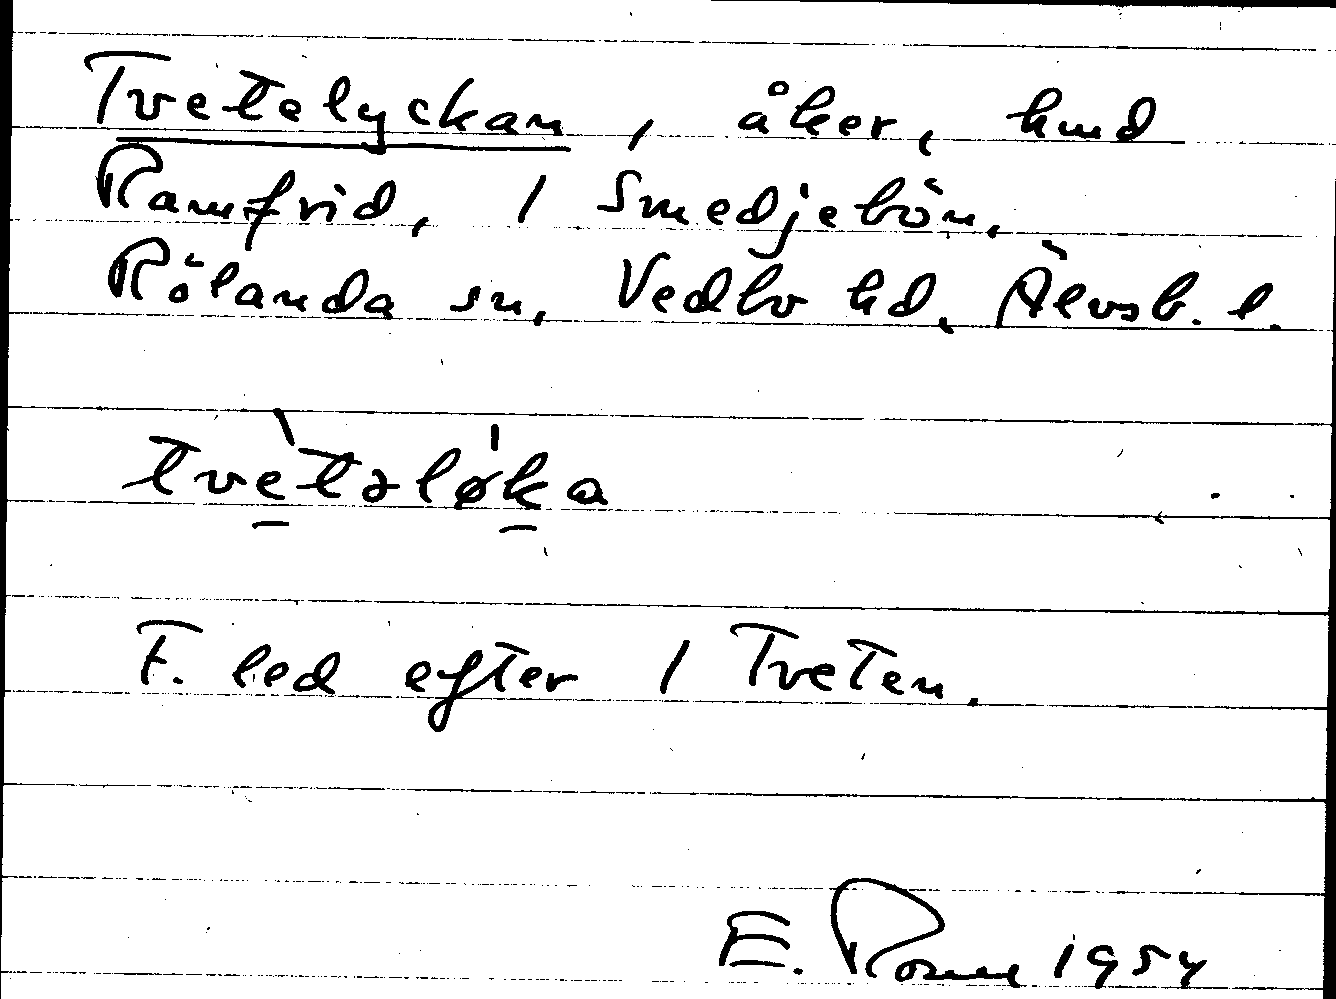 Tvetelyckan, åker, hmd
Ramfrid, 1 Smedjebön,
Rölanda sn, Vedbo hd, Älvsb. l.
tvètəløka
F. led efter 1 Tveten.
E. 1954